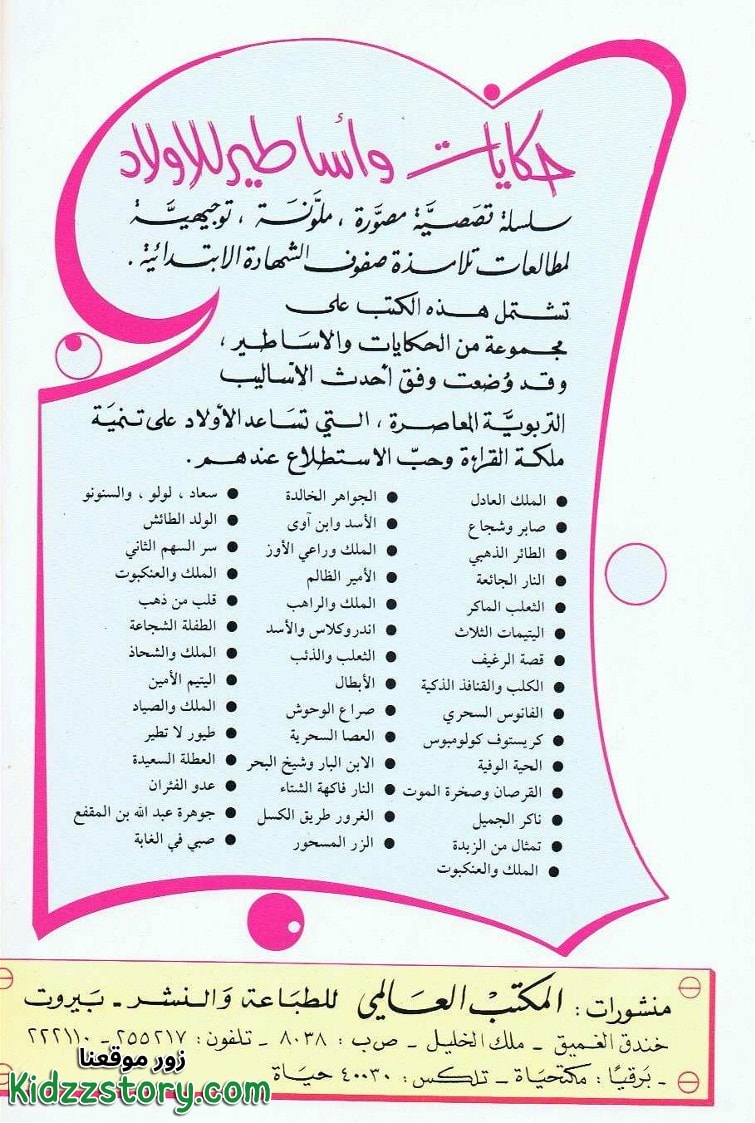 حكايات وأساطير للاولاد
سلسلة قصصيَّة مصوَّرة ، ملوَّنة ، توجيهيَّة
لمطالعات تلامذة صفوف الشهادة الابتدائية .
تشتمل هذه الكتب على
مجموعة من الحكايات والاساطير ،
وقد وُضعت وفق أحدث الأساليب
التربويَّة المعاصرة ، التي تساعد الأولاد على تنمية
ملكة القراءة وحبّ الاستطلاع عندهم .
● الملك العادل
● صابر وشجاع
● الطائر الذهبي
● النار الجائعة
● الثعلب الماكر
● اليتيمات الثلاث
● قصة الرغيف
● الكلب والقنافذ الذكية
● الفانوس السحري
● كريستوف كولومبوس
● الحية الوفية
● القرصان وصخرة الموت
● ناكر الجميل
● تمثال من الزبدة
● الملك والعنكبوت
● الجواهر الخالدة
● الأسد وابن آوى
● الملك وراعي الأوز
● الأمير الظالم
● الملك والراهب
● اندروكلاس والأسد
● الثعلب والذئب
● الأبطال
● صراع الوحوش
● العصا السحرية
● الابن البار وشيخ البحر
● النار فاكهة الشتاء
● الغرور طريق الكسل
● الزر المسحور
● سعاد ، لولو ، والسنونو
● الولد الطائش
● سر السهم الثاني
● الملك والعنكبوت
● قلب من ذهب
● الطفلة الشجاعة
● الملك والشحاذ
● اليتيم الأمين
● الملك والصياد
● طيور لا تطير
● العطلة السعيدة
● عدو الفئران
● جوهرة عبد الله بن المقفع
● صبي في الغابة
منشورات : المكتب العالمي للطباعة والنشر - بيروت
خندق الغميق - ملك الخليل - ص ب : ٨٠٣٨ - تلفون : ٢٥٥٢١٧ - ٢٢٢١١٠
- برقيًا : مكتحياة - تلكس : ٤٠٠٣٠ حياة
زور موقعنا
Kidzzstory.com